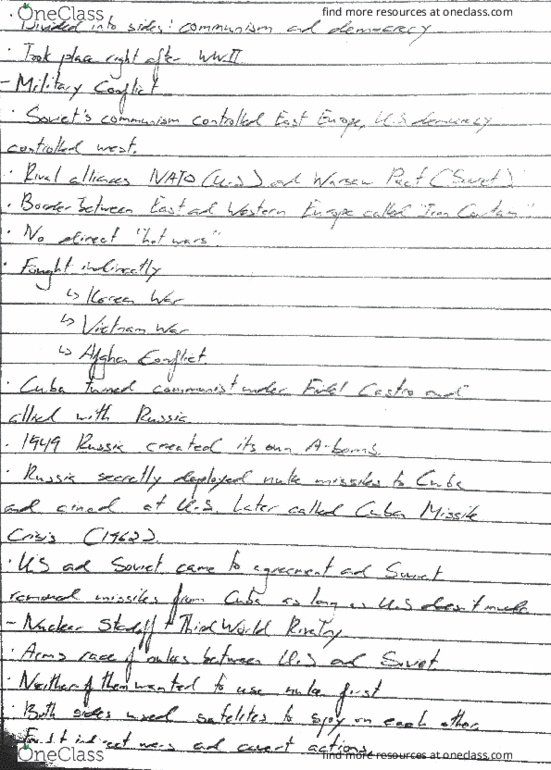 OneClass
find more resources at oneclass.com
· Divided into sides: communism and democracy
· Took place right after WWII
- Military Conflict
· Soviet's communism controlled East Europe, U.S democracy
controlled west.
· Rival alliances NATO (U.S) ad Warsaw Pact (Soviet)
· Border between East ad Western Europe called "Iron Curtain"
· No direct "hot wars".
· Fought indirectly
↳ Korean War
↳ Vietnam War
↳ Afghan Conflict
· Cuba turned communist under Fidel Castro and
allied with Russia
· 1949 Russia created its own A-bombs.
· Russia secretly deployed nuke missiles to Cuba
and aimed at U.S. Later called Cuban Missile
Crisis (1962).
· US ad Soviet came to agreement ad Soviet
removed missiles from Cuba as long as U.S doesn't
- Nuclear Standoff + Third World Rivalry
· Arms race of nukes between U.S ad Soviet.
· Neither of them wanted to use nuke first
· Both sides used satelites to spy on each other.
indirect wars and covert actions.
OneClass
find more resources at oneclass.com